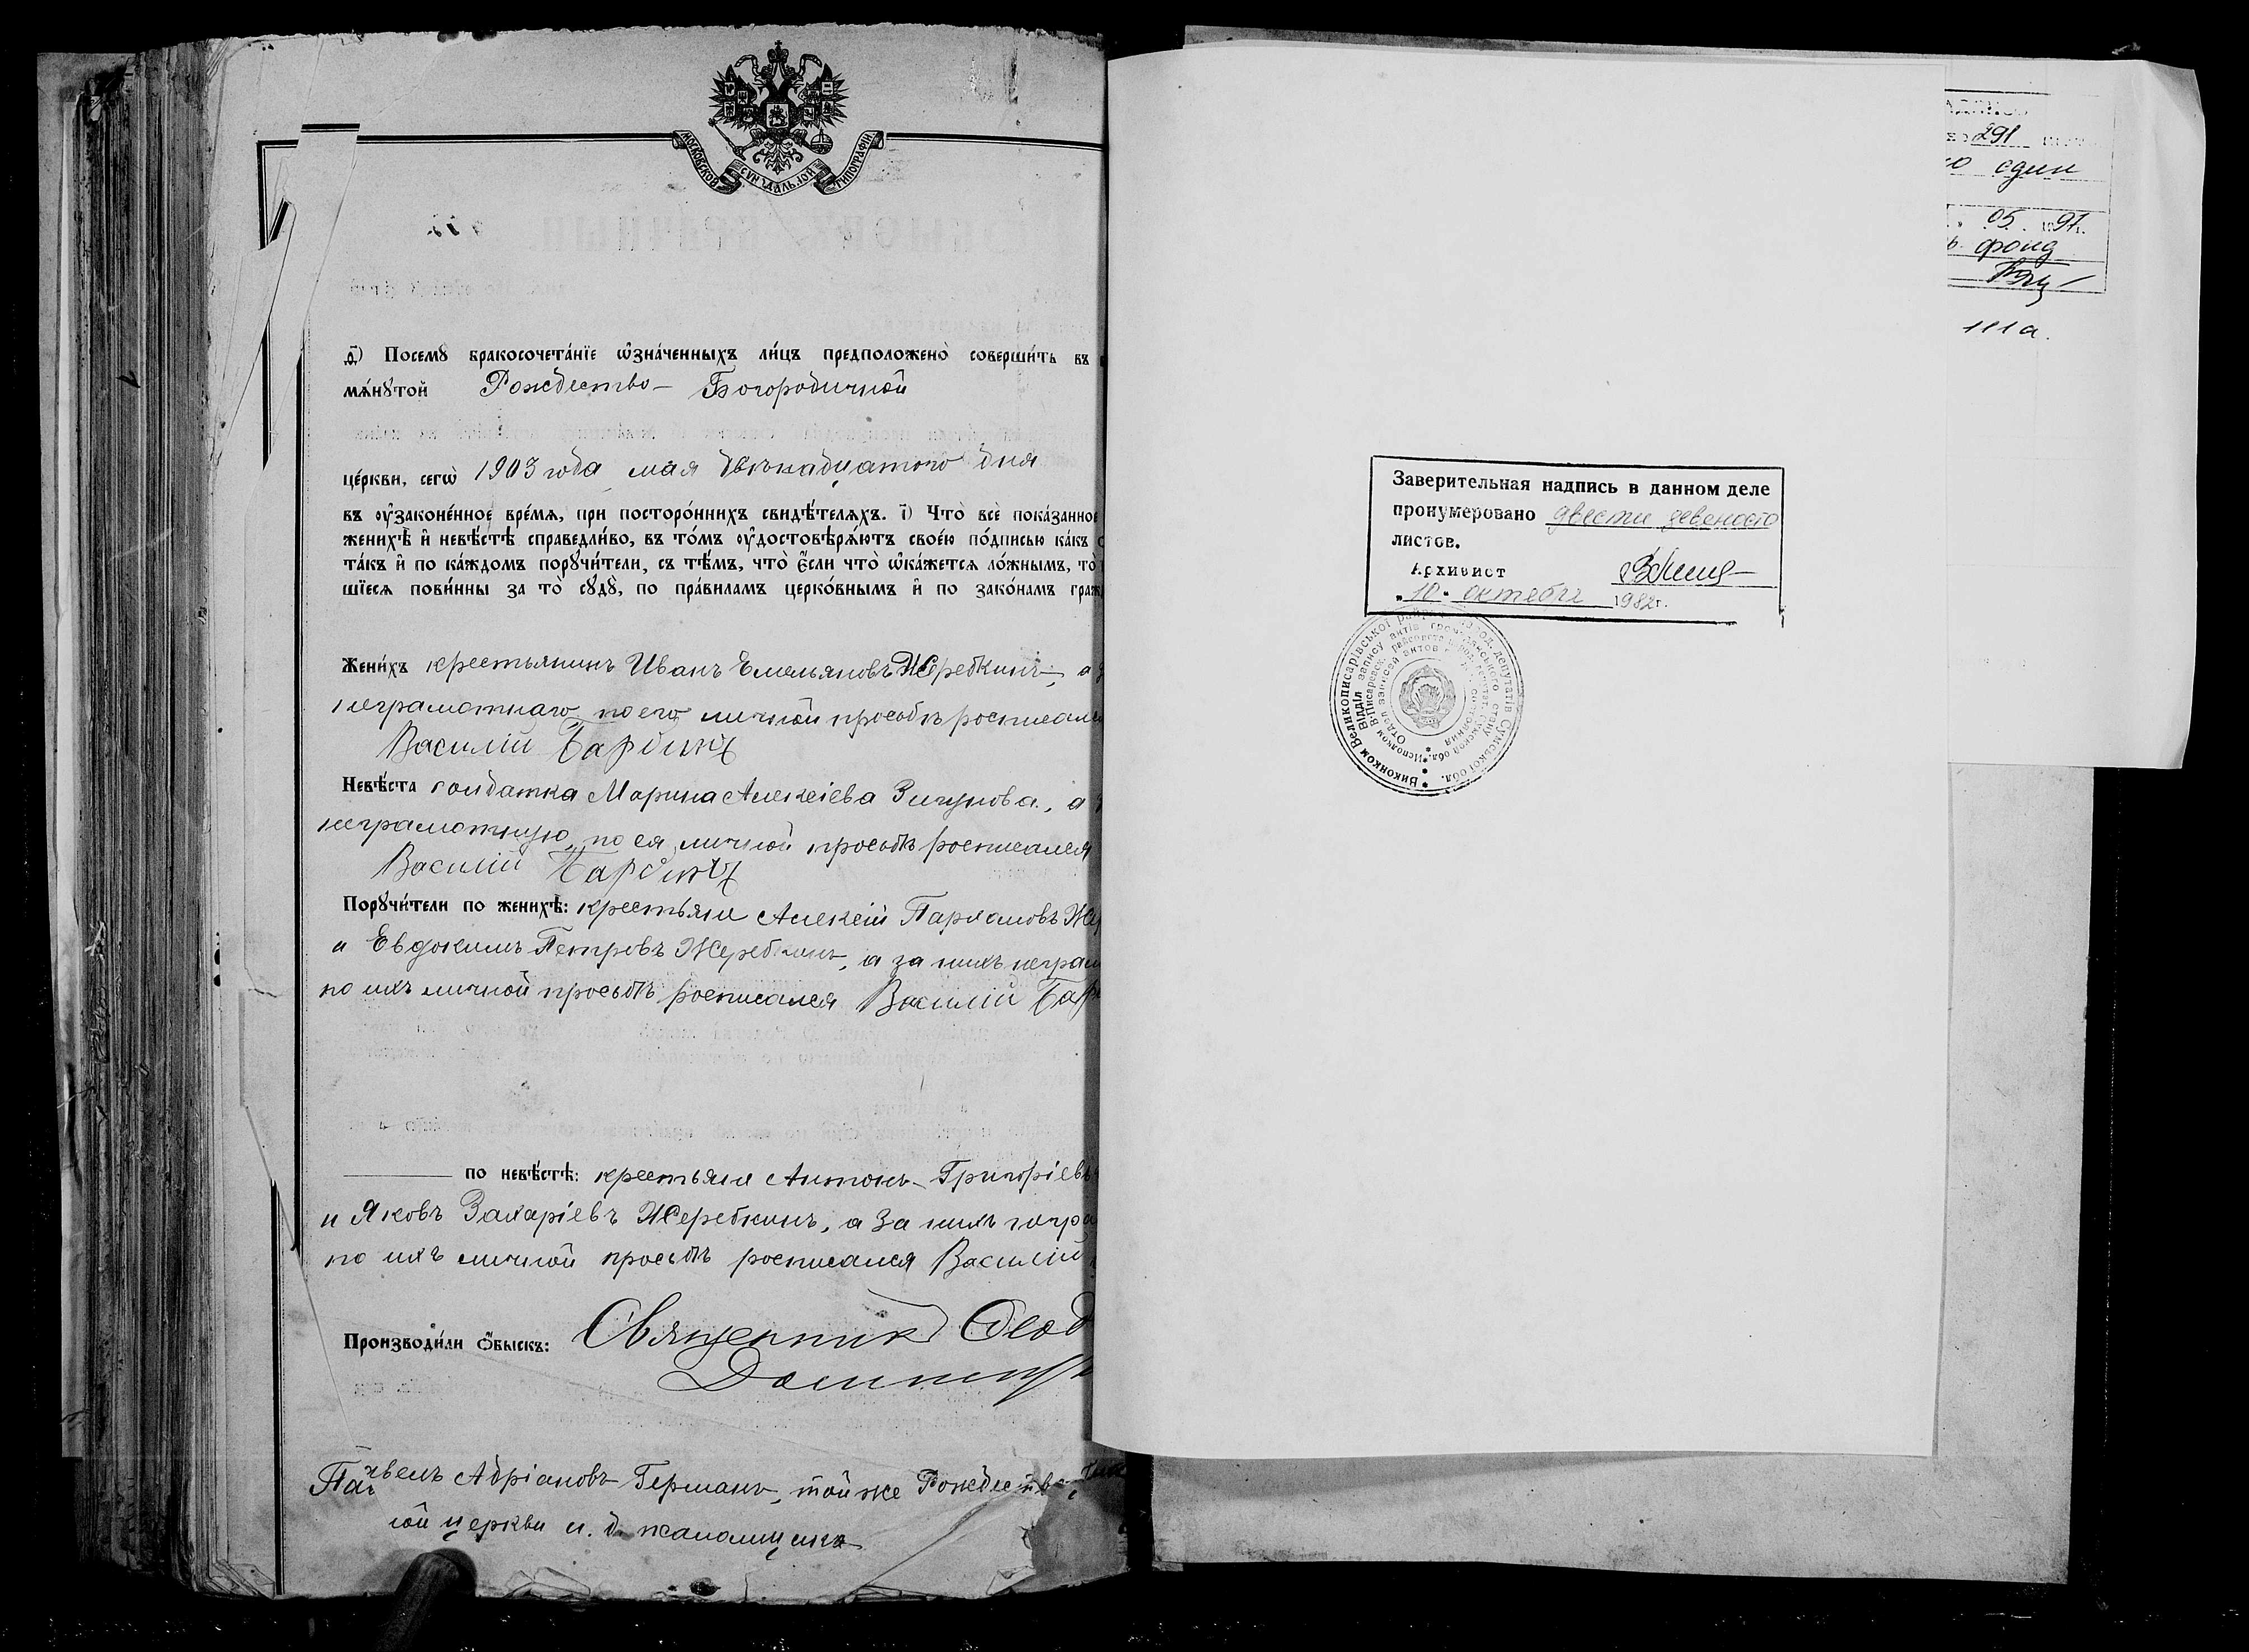 МОСКОВСКОЙ СѴНОДАЛЬНОЙ ТИПОГРАФІИ
д҃) Посемꙋ бракосочета́нїе ѡ҆зна́ченныхъ ли́цъ предположено̀ соверши́ть въ
мѧ́нꙋтой Рождество-Богородичной
це́ркви, сегѡ̀ 1903 года мая двѣнадцатого дня
въ ᲂу҆законе́нное вре́мѧ, при посторо́ннихъ свидѣ́телѧхъ. і҃) Что̀ всѐ пока́занное
женихѣ̀ и҆ невѣ́стѣ справедли́во, въ то́мъ ᲂу҆достовѣрѧ́ютъ свое́ю по́дписью ка́къ
та́къ и҆ по ка́ждомъ порꙋчи́тели, съ тѣ́мъ, что̀ є҆́сли что̀ ѡ҆ка́жетсѧ ло́жнымъ, то̀
шїесѧ пови́нны за то̀ сꙋдꙋ̀, по пра́виламъ церко́внымъ и҆ по зако́намъ граж
Жени́хъ крестьянинъ Иванъ Емельяновъ Жеребкинъ, а
неграмотнаго, по его личной просьбѣ росписался
Василій Бардинъ
Невѣ́ста солдатка Марина Алексіева Зигунова, а
неграмотную, по ея личной просьбѣ росписался
Василій Бардинъ
Порꙋчи́тели по женихѣ̀: крестьяне Алексій Пархомовъ Жер
и Евдокимъ Петровъ Жеребкинъ, а за нихъ неграм
по ихъ личной просьбѣ росписался Василій Бар
по невѣ́стѣ: крестьяне Антонъ Григоріевъ
и Яковъ Захаріевъ Жеребкинъ, а за нихъ негра
по ихъ личной просьбѣ росписался Василій
Производи́ли ѻ҆́быскъ: Священник Ѳеод
Павелъ Адріановъ Германъ, той же Рождество
ной церкви и. д. псаломщика
Заверительная надпись в данном деле
пронумеровано двести девяносто
листов.
Архивист
„10“ октября 1982г.
Виконком Великописарівської районної ради народ. депутатів Сумської обл.
Відділ запису актів громадянського стану
291
один
05 1991г.
фонд
111а.